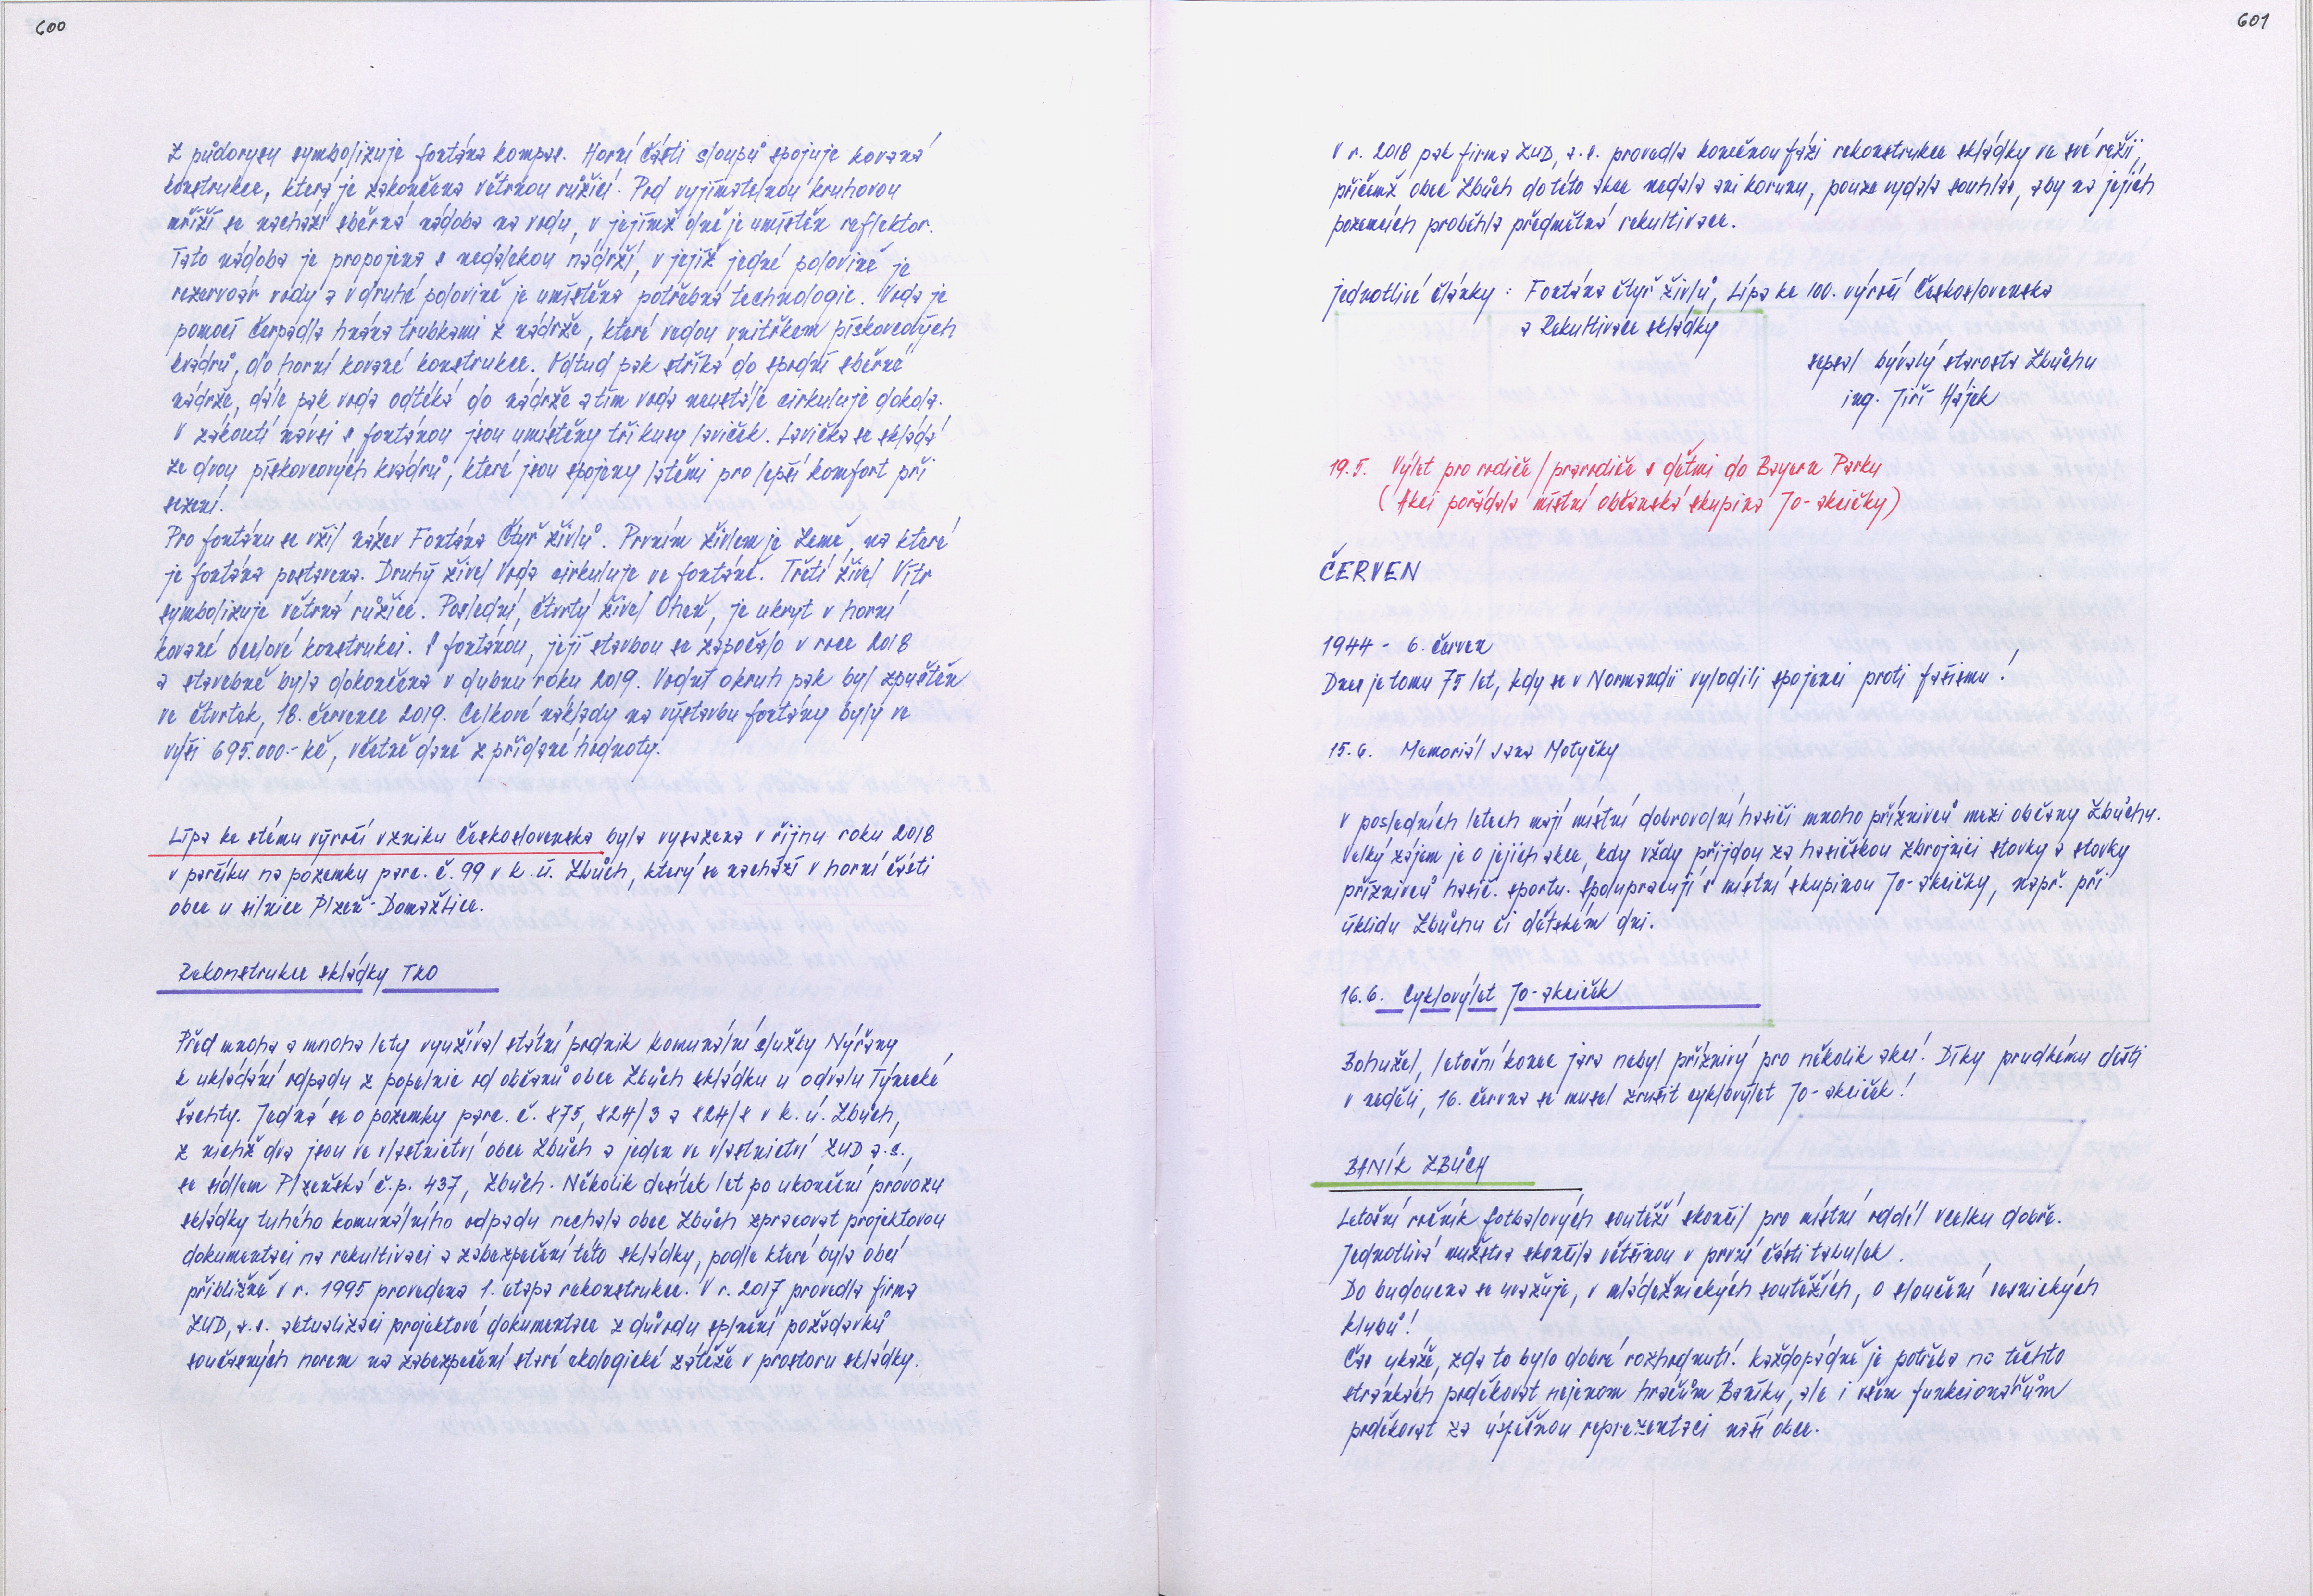 600
Z půdorysu symbolizuje fontána kompas. Horní části sloupů spojuje kovaná
konstrukce, která je zakončena větrnou růžicí. Pod vyjímatelnou kruhovou
mříží se nachází sběrná nádoba na vodu, v jejímž dně je umístěn reflektor.
Tato nádoba je propojena s nedalekou nádrží, v jejíž jedné polovině je
rezervoár vody a v druhé polovině je umístěna potřebná technologie. Voda je
pomocí čerpadla hnána trubkami z nádrže, které vedou vnitřkem pískovcových
kvádrů, do horní kované konstrukce. Odtud pak stříká do spodní sběrné
nádrže, dále pak voda odtéká do nádrže a tím voda neustále cirkuluje dokola.
V zákoutí návsi s fontánou jsou umístěny tři kusy laviček. Lavička se skládá
ze dvou pískovcových kvádrů, které jsou spojeny latěmi pro lepší komfort při
sezení.
Pro fontánu se vžil název Fontána Čtyř živlů. Prvním živlem je Země, na které
je fontána postavena. Druhý živel Voda cirkuluje ve fontáně. Třetí živel Vítr
symbolizuje větrná růžice. Poslední, čtvrtý živel Oheň, je ukryt v horní
kované ocelové konstrukci. S fontánou, její stavbou se započalo v roce 2018
a stavebně byla dokončena v dubnu roku 2019. Vodní okruh pak byl spuštěn
ve čtvrtek, 18. července 2019. Celkové náklady na výstavbu fontány byly ve
výši 695.000.- kč, včetně daně z přidané hodnoty.
Lípa ke stému výročí vzniku Československa byla vysazena v říjnu roku 2018
v parčíku na pozemku parc. č. 99 v k. ú. Zbůch, který se nachází v horní části
obce u silnice Plzeň - Domažlice.
Rekonstrukce skládky TKO
Před mnoha a mnoha lety využíval státní podnik komunální služby Nýřany
k ukládání odpadu z popelnic od občanů obce Zbůch skládku u odvalu Týnecké
šachty. Jedná se o pozemky parc. č. 875, 824/3 a 824/8 v k. ú. Zbůch,
z nichž dva jsou ve vlastnictví obce Zbůch a jeden ve vlastnictví ZUD a.s.,
se sídlem Plzeňská č.p. 437, Zbůch. Několik desítek let po ukončení provozu
skládky tuhého komunálního odpadu nechala obec Zbůch zpracovat projektovou
dokumentaci na rekultivaci a zabezpečení této skládky, podle které byla obcí
přibližně v r. 1995 provedena 1. etapa rekonstrukce. V r. 2017 provedla firma
ZUD, a.s. aktualizaci projektové dokumentace z důvodu splnění požadavků
současných norem na zabezpečení staré ekologické zátěže v prostoru skládky.
601
V r. 2018 pak firma ZUD, a.s. provedla konečnou fázi rekonstrukce skládky ve své režii,
přičemž obec Zbůch do této akce nedala ani korunu, pouze vydala souhlas, aby na jejích
pozemcích proběhla předmětná rekultivace.
jednotlivé články : Fontána čtyř živlů, Lípa ke 100. výročí Československa
a Rekultivace skládky
sepsal bývalý starosta Zbůchu
ing. Jiří Hájek
19.5. Výlet pro rodiče / prarodiče s dětmi do Bayern Parku
(Akci pořádala místní občanská skupina Jo-akcičky)
ČERVEN
1944 - 6. červen
Dnes je tomu 75 let, kdy se v Normandii vylodili spojenci proti fašismu!
15.6. Memoriál Jana Motyčky
V posledních letech mají místní dobrovolní hasiči mnoho příznivců mezi občany Zbůchu.
Velký zájem je o jejich akce, kdy vždy přijdou za hasičskou zbrojnici stovky a stovky
příznivců hasič. sportu. Spolupracují s místní skupinou Jo-akcičky, např. při
úklidu Zbůchu či dětském dni.
16.6. Cyklovýlet Jo-akciček
Bohužel, letošní konec jara nebyl příznivý pro několik akcí! Díky prudkému dešti
v neděli, 16. června se musel zrušit cyklovýlet Jo-akciček!
BANÍK ZBŮCH
Letošní ročník fotbalových soutěží skončil pro místní oddíl vcelku dobře.
Jednotlivá mužstva skončila většinou v první části tabulek.
Do budoucna se uvažuje, v mládežnických soutěžích, o sloučení vesnických
klubů!
Čas ukáže, zda to bylo dobré rozhodnutí. Každopádně je potřeba na těchto
stránkách poděkovat nejenom hráčům Baníku, ale i všem funkcionářům
poděkovat za úspěšnou reprezentaci naší obce.